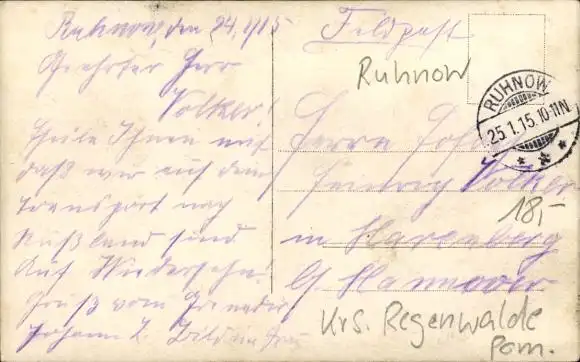 Ruhnow, den 24.1.15
Geehrter Herr
Volker!
Theile Ihnen mit
daß wir auf dem
Transport nach
Rußland sind
Auf Wiedersehn!
Gruß vom Grenadier
Johann
Feldpost
Ruhnow
RUHNOW
25.1.15.10-11N
Herrn
Heinrig Volker
18,-
in Harenberg
b/ Hannover
Krs. Regenwalde
Pom.